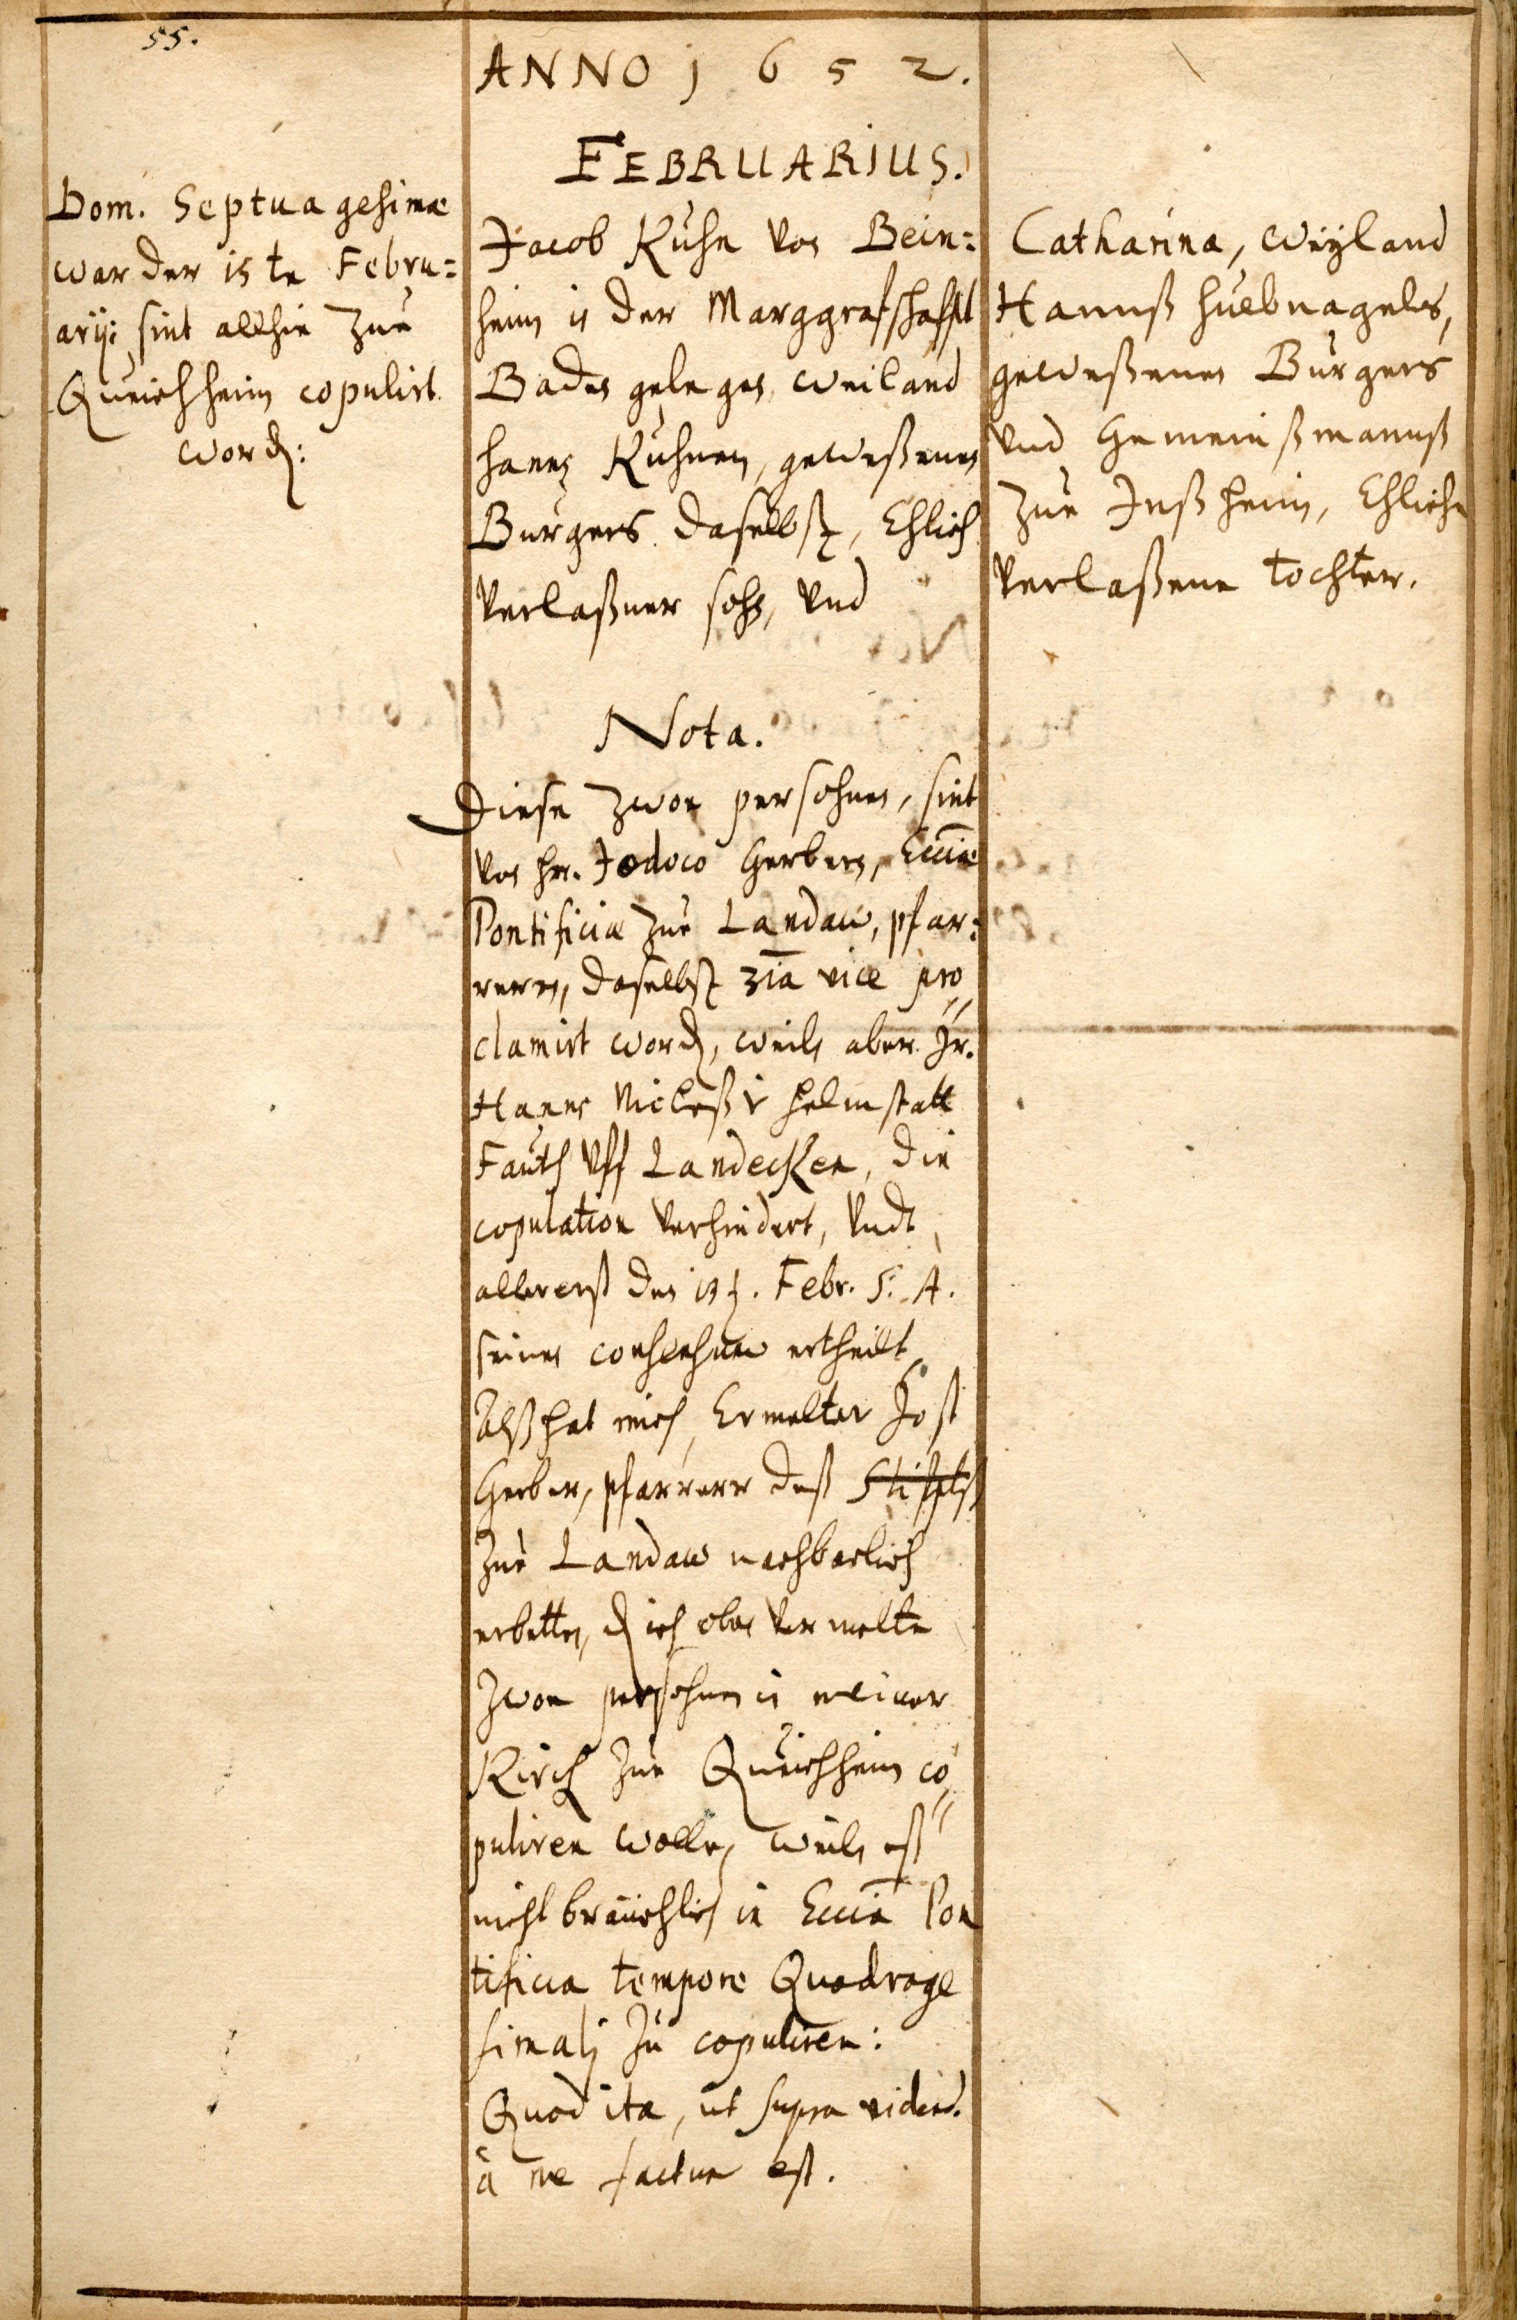 55.
ANNO 1652.
FEBRUARIUS.
Dom. Septuagesimæ
war der 15te Febru=
arÿ: sint allhie zue
Queichheim copulirt
word:
Jacob Kuhn von Bein=
heim in der Marggrafschafft
Baden gelegen, weiland
hannß Kuhnen, geweßenen
Burgers daselbst, Ehlich
verlaßner sohn, und
Catharina, weyland
Hannß huebnagels,
geweßenen Burgers
und Gemeinßmannß
zue Inßheim, Ehliche
verlaßene tochter.
Nota.
Diese zwoe persohnen, sint
von hr. Jodoco Gerbern, Ecciæ
Pontificiæ zue Landaw, pfar=
rern, daselbst 3ia vice pro„
clamirt word, weiln aber Jr.
Hannß Niclaß v helmstatt
Fauth uff Landecken, die
copulation verhindert, undt
allererst den 13t. Febr. S. A.
seinen consensum ertheilt,
Alß hat mich, Ermelter Jost
Gerber, pfarrerr deß Stiffts
zue Landaw nachbarlich
erbetten, d ich oben vermelte
zwoe persohnen in meiner
Kirch zue Queichheim co„
puliren wolle, weiln eß
nicht bräuchlich in Eccia Pon
tificia tempore Quadrage
simalj zu copuliren:
Quod ita, ut supra
à me factum est.